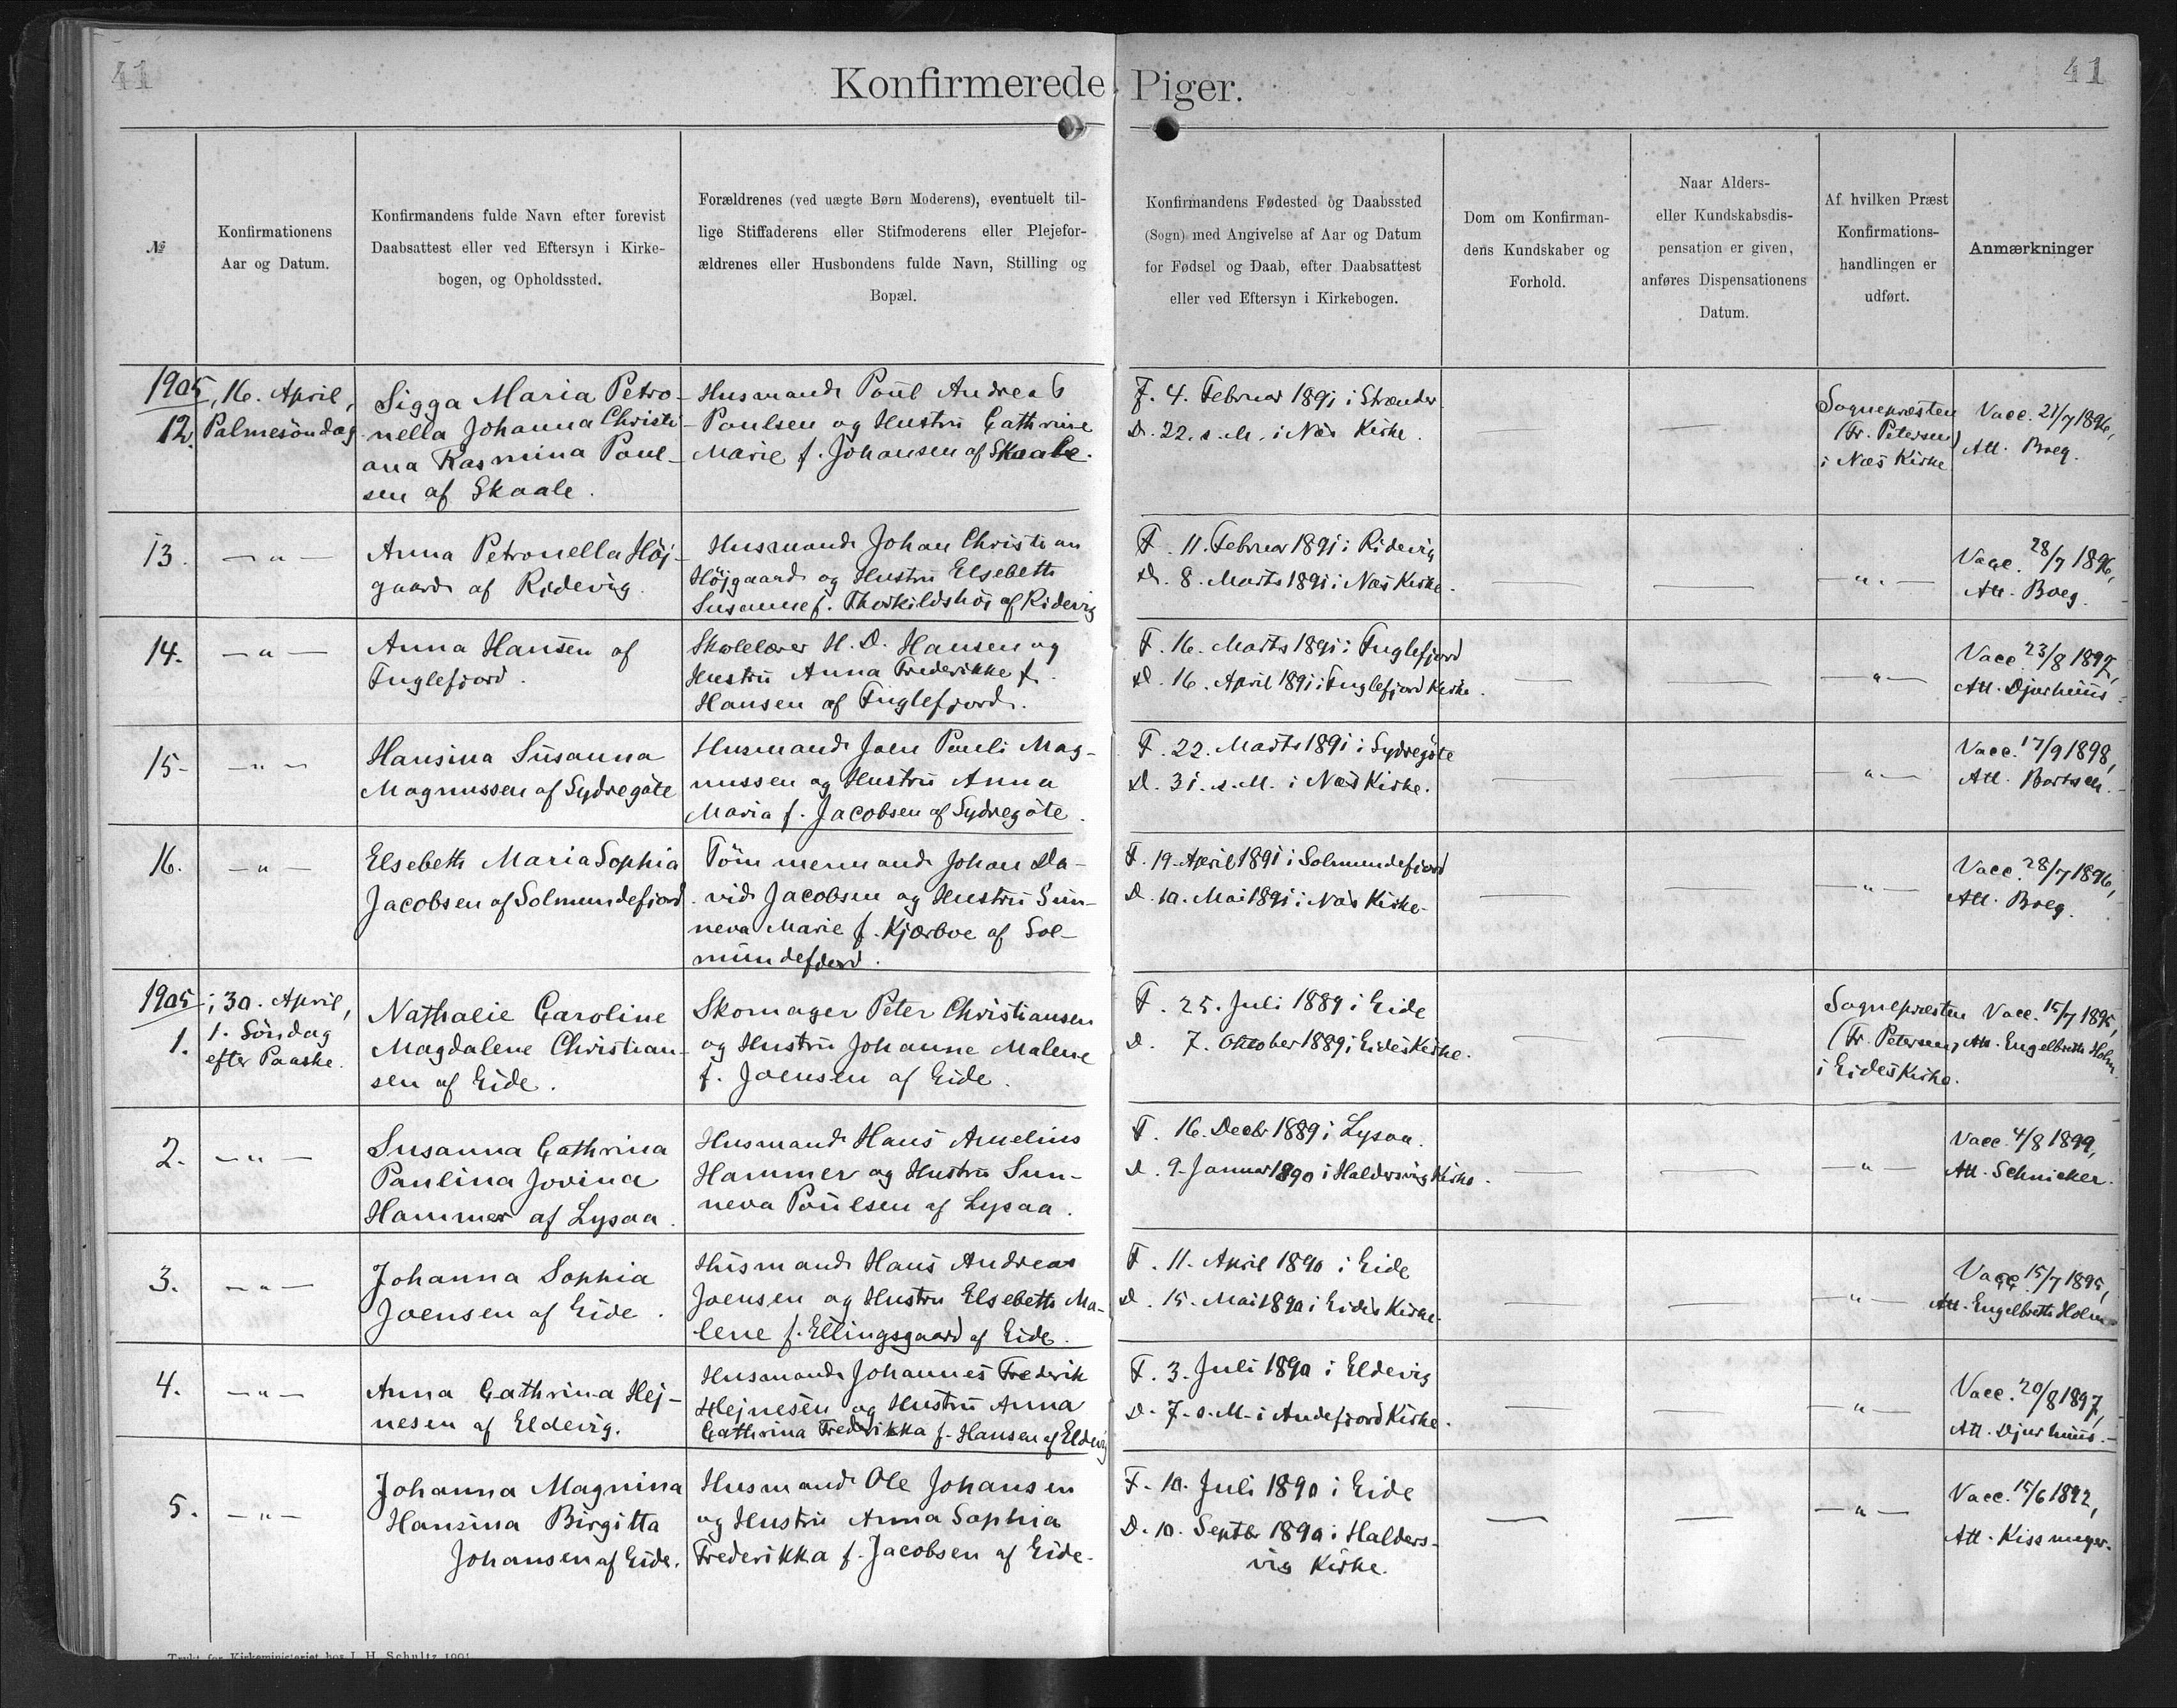 41
Konfirmerede Piger.
41
№
Konfirmationens
Aar og Datum.
Konfirmandens fulde Navn efter forevist
Daabsattest eller ved Eftersyn i Kirke-
bogen, og Opholdssted.
Forældrenes (ved uægte Børn Moderens), eventuelt til-
lige Stiffaderens eller Stifmoderens eller Plejefor-
ældrenes eller Husbondens fulde Navn, Stilling og
Bopæl.
Konfirmandens Fødested og Daabssted
(Sogn) med Angivelse af Aar og Datum
for Fødsel og Daab, efter Daabsattest
eller ved Eftersyn i Kirkebogen.
Dom om Konfirman-
dens Kundskaber og
Forhold.
Naar Alders-
eller Kundskabsdis-
pensation er given,
anføres Dispensationens
Datum.
Af hvilken Præst
Konfirmations-
handlingen er
udført.
Anmærkninger
1905, 16. April,
12. Palmesöndag
Sigga Maria Petro-
nella Johanna Christi-
ana Rasmina Poul-
sen af Skaale.
Husmand Poul Andreas
Poulsen og Hustru Cathrine
Marie f. Johansen af Skaale.
F. 4. Februar 1891 i Strænder
D. 22. s. M. i Næs Kirke.
Sognepræsten
(Fr. Petersen)
i Næs Kirke
Vacc. 21/7 1896,
Att. Boeg.
13. — " —
Anna Petronella Höj-
gaard af Ridevig.
Husmand Johan Christian
Höjgaard og Hustru Elsebeth
Susanne f. Thorkildshöj af Ridevig
F. 11. Februar 1891 i Ridevig
D. 8. Marts 1891 i Næs Kirke.
— " —
Vacc. 28/7 1896,
Att. Boeg.
14. — " —
Anna Hansen af
Fuglefjord.
Skolelærer H. D. Hansen og
Hustru Anna Frederikke f.
Hansen af Fuglefjord.
F. 16. Marts 1891 i Fuglefjord
D. 16. April 1891 i Fuglefjord Kirke.
— " —
Vacc. 23/8 1897,
Att. Djurhuus.
15. — " —
Hansina Susanna
Magnussen af Sydregöte
Husmand Joen Pauli Mag-
nussen og Hustru Anna
Maria f. Jacobsen af Sydregöte.
F. 22. Marts 1891 i Sydregöte
D. 31. s. M. i Næs Kirke.
— " —
Vacc. 17/9 1898,
Att. Bertsen.
16. — " —
Elsebeth Maria Sophia
Jacobsen af Solmundefjord.
Tömmermand Johan Da-
vid Jacobsen og Hustru Sun-
neva Marie f. Kjærboe af Sol-
mundefjord.
F. 19. April 1891 i Solmundefjord
D. 10. Mai 1891 i Næs Kirke.
— " —
Vacc. 28/7 1896,
Att. Boeg.
1905; 30. April,
1. 1. Söndag
efter Paaske.
Nathalie Caroline
Magdalene Christian-
sen af Eide.
Skomager Peter Christiansen
og Hustru Johanne Malene
f. Joensen af Eide.
F. 25. Juli 1889 i Eide
D. 7. Oktober 1889 i Eides Kirke.
Sognepræsten
(Fr. Petersen)
i Eides Kirke.
Vacc. 15/7 1895,
Att. Engelbreth Holm.
2. — " —
Susanna Cathrina
Paulina Jovina
Hammer af Lysaa.
Husmand Hans Amelius
Hammer og Hustru Sun-
neva Poulsen af Lysaa.
F. 16. Decbr 1889 i Lysaa.
D. 9. Januar 1890 i Haldersvig Kirke.
— " —
Vacc. 4/8 1899,
Att. Schnicker.
3. — " —
Johanna Sophia
Joensen af Eide.
Husmand Hans Andreas
Joensen og Hustru Elsebeth Ma-
lene f. Ellingsgaard af Eide.
F. 11. April 1890 i Eide
D. 15. Mai 1890 i Eides Kirke.
— " —
Vacc. 15/7 1895,
Att. Engelbreth Holm
4. — " —
Anna Cathrina Hej-
nesen af Eldevig.
Husmand Johannes Frederik
Hejnesen og Hustru Anna
Cathrina Frederikka f. Hansen af Eldevig
F. 3. Juli 1890 i Eldevig
D. 7. s. M. i Andefjord Kirke.
— " —
Vacc. 20/8 1897,
Att. Djurhuus.
5. — " —
Johanna Magnina
Hansina Birgitta
Johansen af Eide.
Husmand Ole Johansen
og Hustru Anna Sophia
Frederikka f. Jacobsen af Eide.
F. 10. Juli 1890 i Eide
D. 10. Septbr 1890 i Halders-
vig Kirke.
— " —
Vacc. 15/6 1892,
Att. Kissmeyer.
Trykt for Kirkeministeriet hos J. H. Schultz 1901